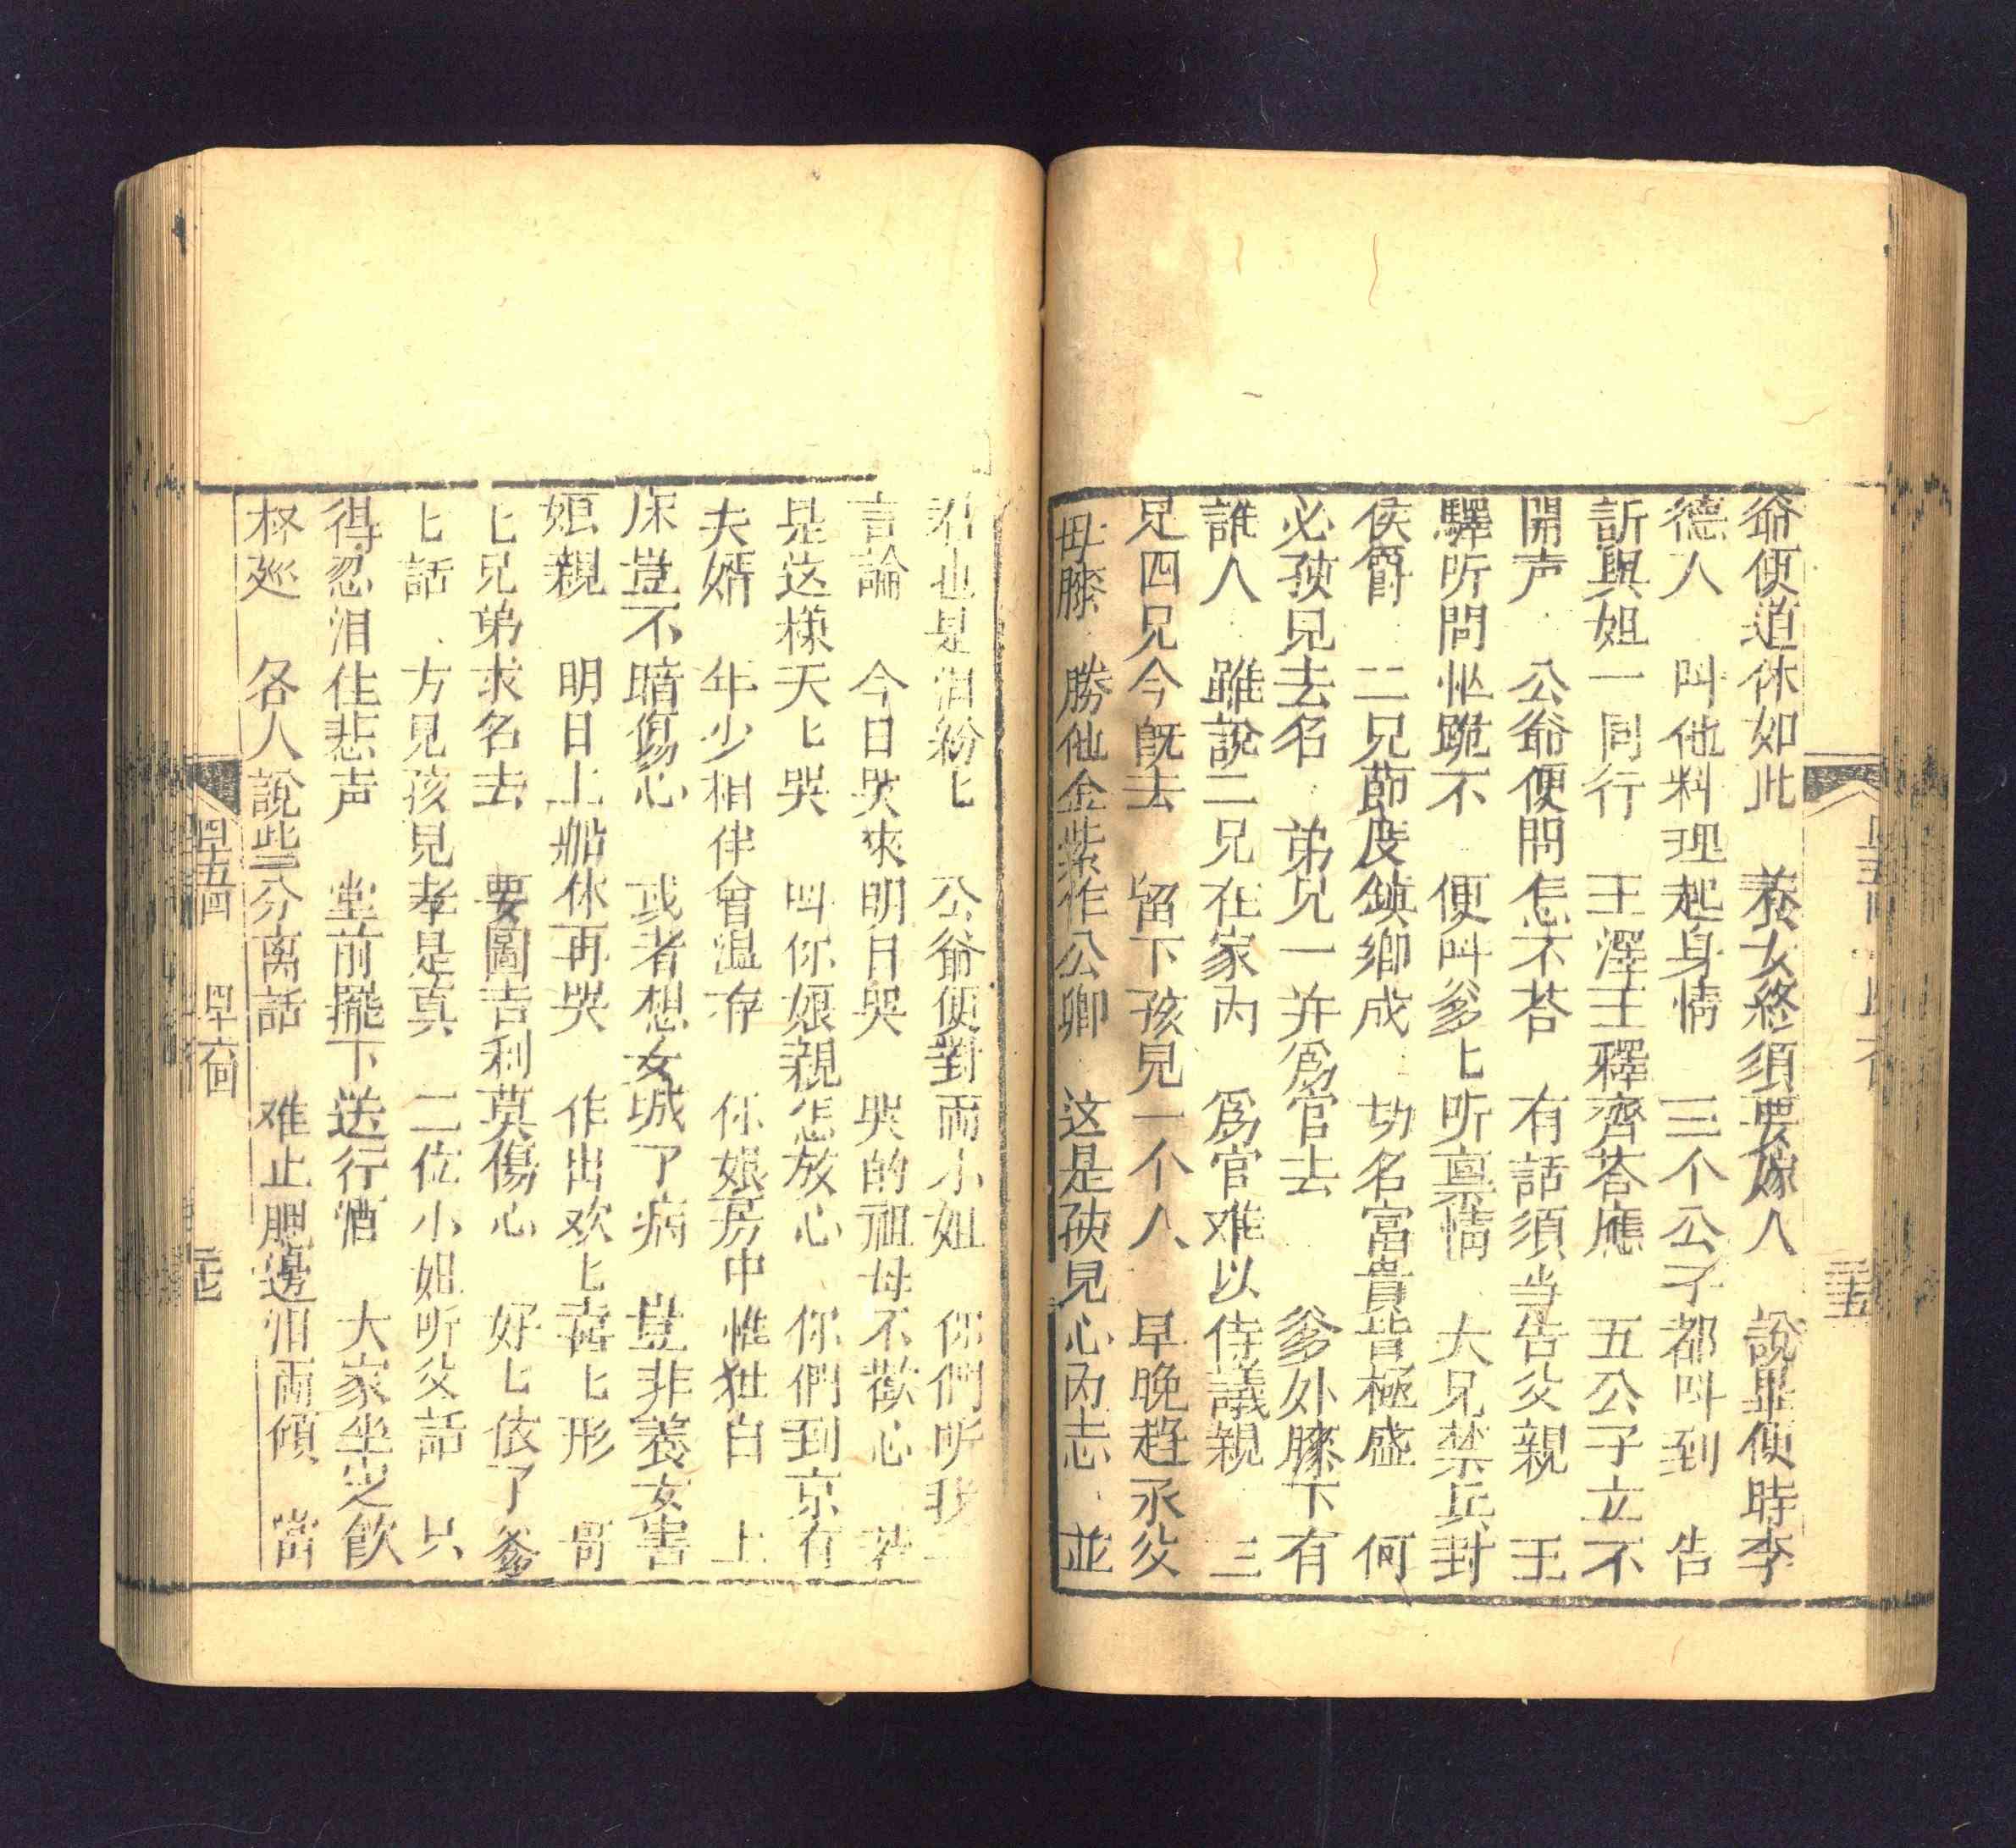 爺便道休如此 養女終須要嫁人 說畢便時李
德人 叫他料理起身情 三个公子都叫到 告
訴與姐一同行 王澤王釋齊荅應 五公子立不
開声 公爺便問怎不荅 有話須当告父親 王
驛所問忙跪不 便叫爹匕听禀情 大兄禁兵封
侯爵 二兄節度鎮鄉成 功名富貴皆極盛 何
必孩兒去名 弟兄一并為官去 爹外膝下有
誰人 雖說二兄在家内 為官难以侍議親 三
兄四兄今既去 留下孩兒一个人 早晚趋承父
母膝 勝他金紫作公卿 这是孩兒心内志 並
君也是泪紛匕 公爺便對兩小姐 你們听我一
言論 今日哭來明日哭 哭的祖母不歡心 若
是这樣天匕哭 叫你娘親怎放心 你們到京有
夫婿 年少相伴會温存 你娘房中惟独自 上
床豈不暗傷心 或者想女城了病 豈非養女害
娘親 明日上船休再哭 作出欢匕喜匕形 哥
匕兄弟求名去 要圖吉利莫傷心 好匕依了爹
匕話 方見孩兒孝是真 二位小姐听父話 只
得忍泪住悲声 堂前擺下送行酒 大家坐定飲
杯巡 各人說些分离話 难止腮邊泪兩傾 當